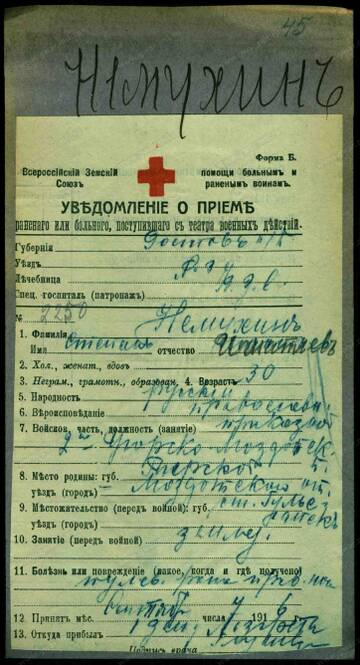 45
Немухинъ
Форма Б.
Всероссійскій Земскій
Союзъ
помощи больнымъ и
раненымъ воинамъ.
УВѢДОМЛЕНІЕ О ПРІЕМѢ
раненаго или больного, поступившаго съ театра военныхъ дѣйствій.
Губернія Ростовъ н/Д
Уѣздъ
Лечебница
Спец. госпиталь (патронажъ)
№ 2250
1. Фамилія Немухинъ
Имя Степанъ отчество
2. Хол., женат., вдов.
3. Неграм., грамотн., образован. 4. Возрастъ 30
5. Народность русскій
6. Вѣроисповѣданіе православн.
7. Войсков. часть, должность (занятіе) приказной
2й Горско-Моздокск. п.
8. Мѣсто родины: губ. Терской
уѣздъ (городъ) Моздокскаго от.
9. Мѣстожительство (передъ войной): губ. ст.
уѣздъ (городъ)
10. Занятіе (передъ войной) земле.
11. Болѣзнь или поврежденіе (какое, когда и гдѣ получено)
пулев. рана прав.
12. Принятъ мѣс. Октябр числа 7 1916
13. Откуда прибылъ
Подпись врача